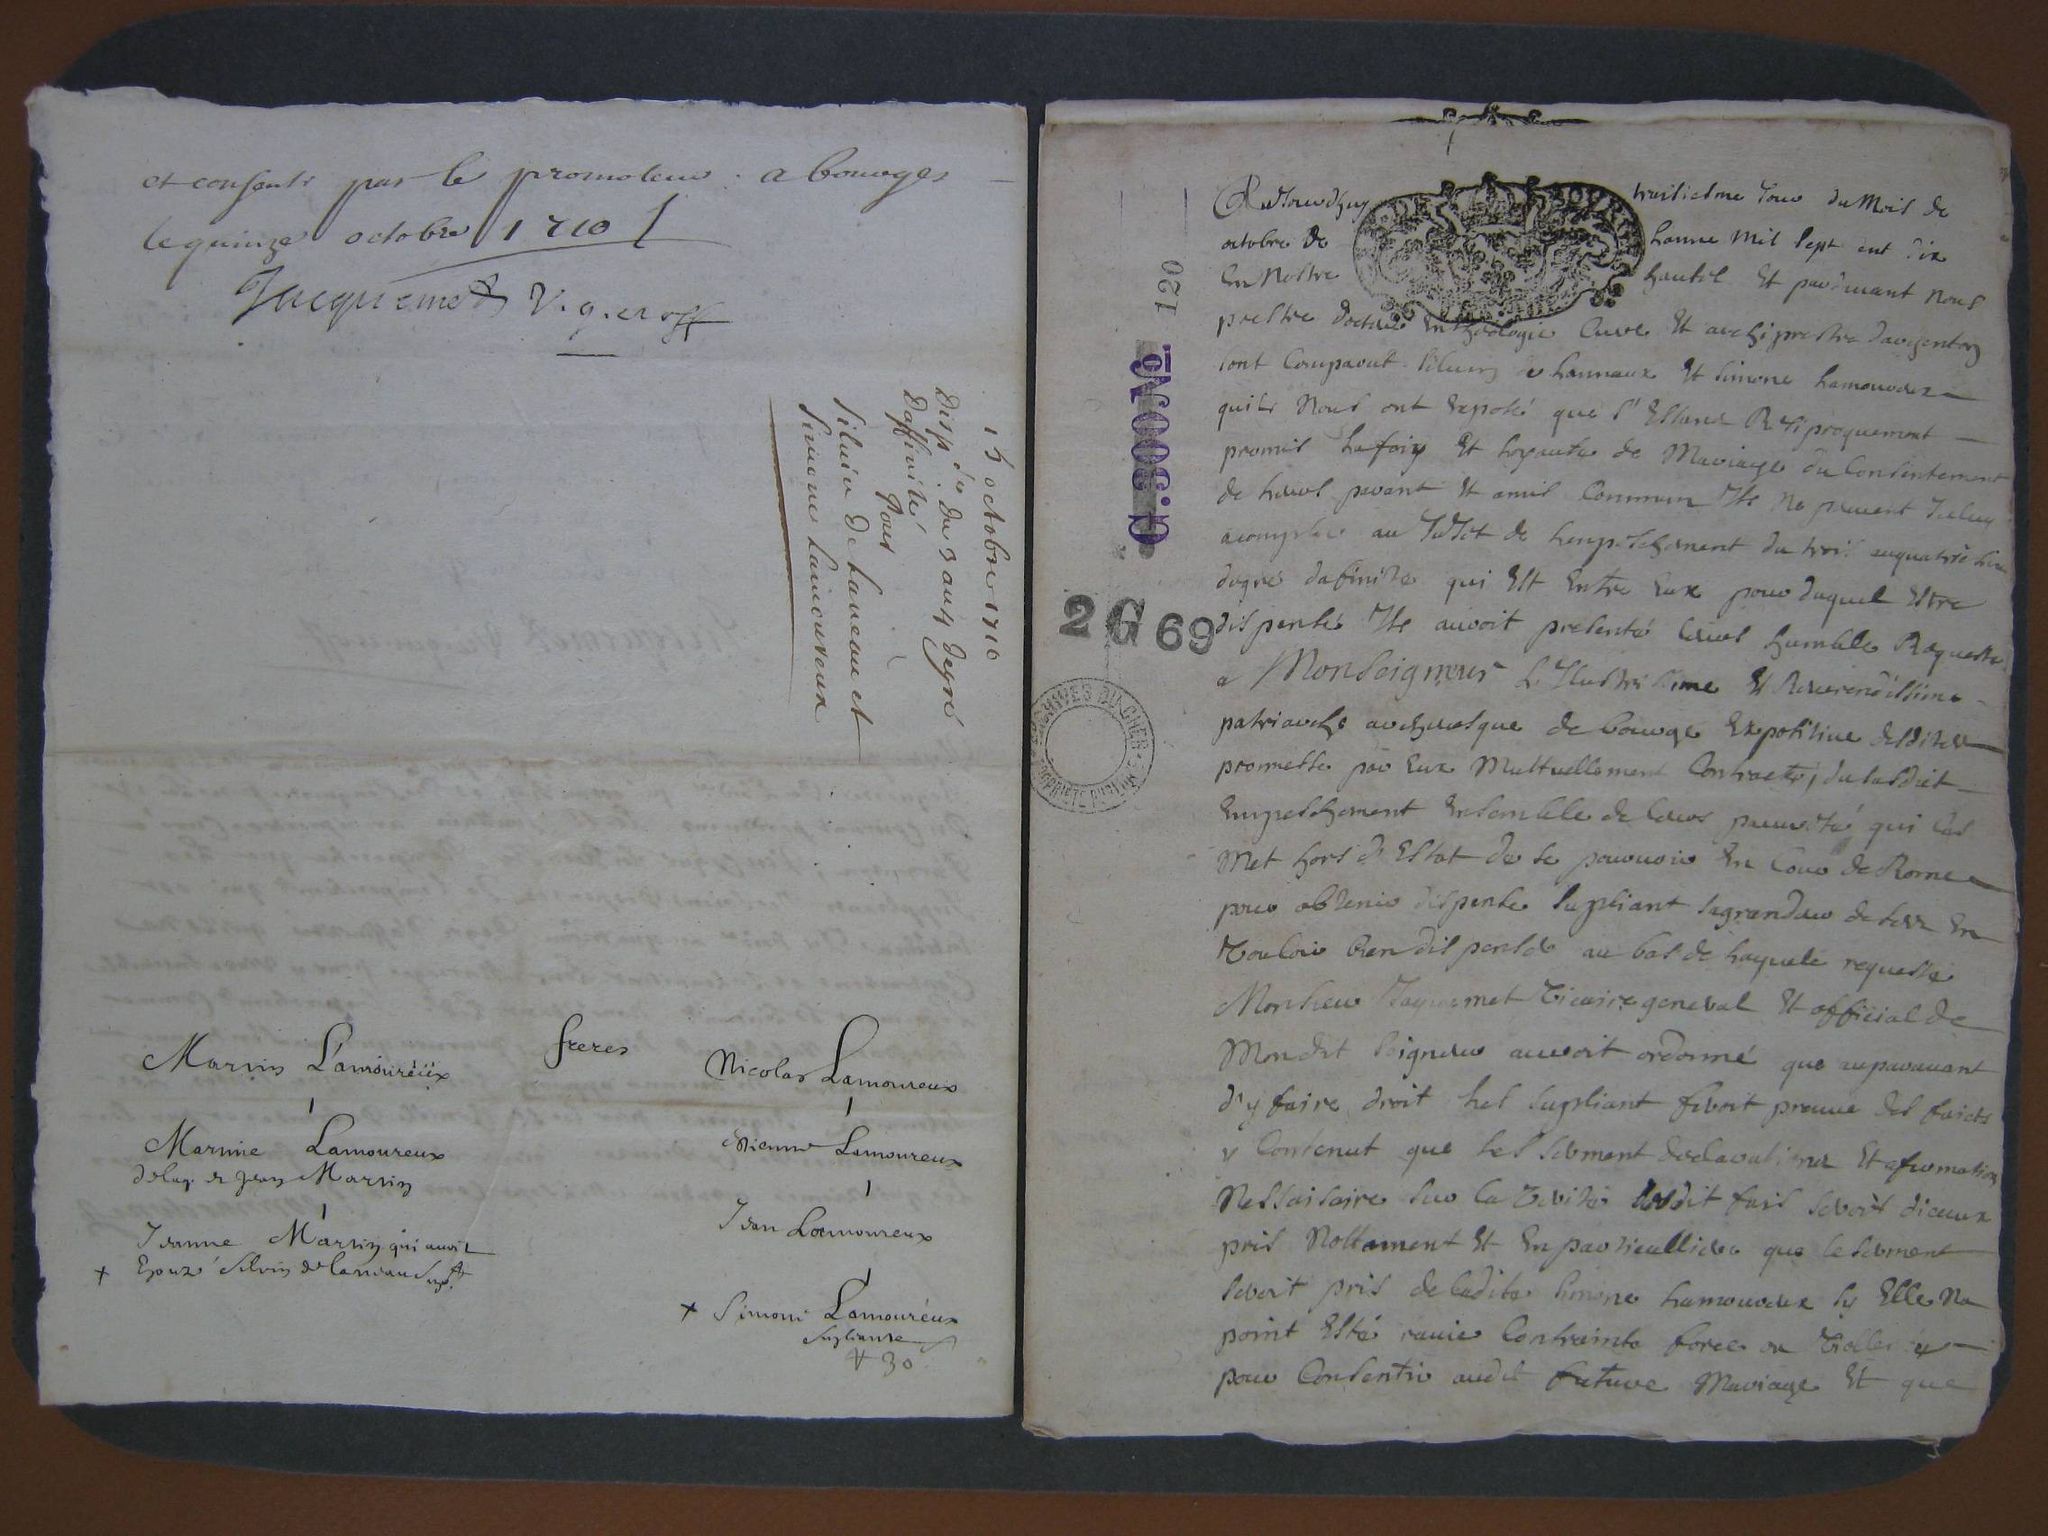 et consenti par le promoteur. a bourges
le quinze octobre 1710
Jacquemet V. g. et off
15 octobre 1710
Disp. du 3 au 4 degré
Daffinité
Pour
Siluin De Laneau et
Simone Lamoureux
freres
Martin Lamoureüx
Nicolas Lamoureux
Martine Lamoureux
de Jean Martin
Etienne Lamoureux
Jeanne Martin qui auoit
Epouzé Siluin de Laneau Supt
Jean Lamoureux
Simone Lamoureux
Supliante
30
120
5.3000.N
2 G 69
ARCHIVES DU CHER
PROPRIÉTÉ PUBLIQUE
Aujourdhuy treisiesme Jour du Mois de
octobre de Lanne Mil Sept cent dix
En Nostre hautel Et pardeuant Nous
prestre docteur En theologie Curé Et archiprestre dargenton
sont Comparut Siluin de Lanneaux Et Simone Lamoureux
quils Nous ont Exposé que S'Estant Resiproquement
promis La foy Et Loyaute de Mariage du Consentement
de Leurs parant Et amis Commun Ils Ne peuuent Iceluy
acomplir au sujet de Lenpeschement du trois au quatriesme
degre dafinite qui Est Entre Eux pour duquel Estre
dispensé Ils auroit presenté Leurs humble Requeste
a Monseigneur L'Illustrissime Et Reuerendissime
patriarche archeuesque de bourge Expositiue desdites
promesse par Eux Muttuellement Contracté, du susdict
Empeschement Ensemble de Leurs pauureté qui Les
Met hors d'Estat de se pouruoir En Cour de Rome
pour obtenir dispense Supliant sa grandeur de Les En
Vouloir bien dispenser au bas de Laquele requeste
Monsieur Jaquemet Vicaire general Et official de
Mondit Seigneur auroit ordonné que auparauant
d'y faire droit Les Supliant feroit preuue des faicts
y Contenut que Les serment declarations Et afirmation
Nessaisaire sur La Verité desdit fais seroit diceux
pris Nottament Et En particulliere que Le serment
seroit pris de Ladite Simone Lamoureux sy Elle Na
point Esté rauie Contrainte forcé ou
pour Consentir audit future Mariage Et que